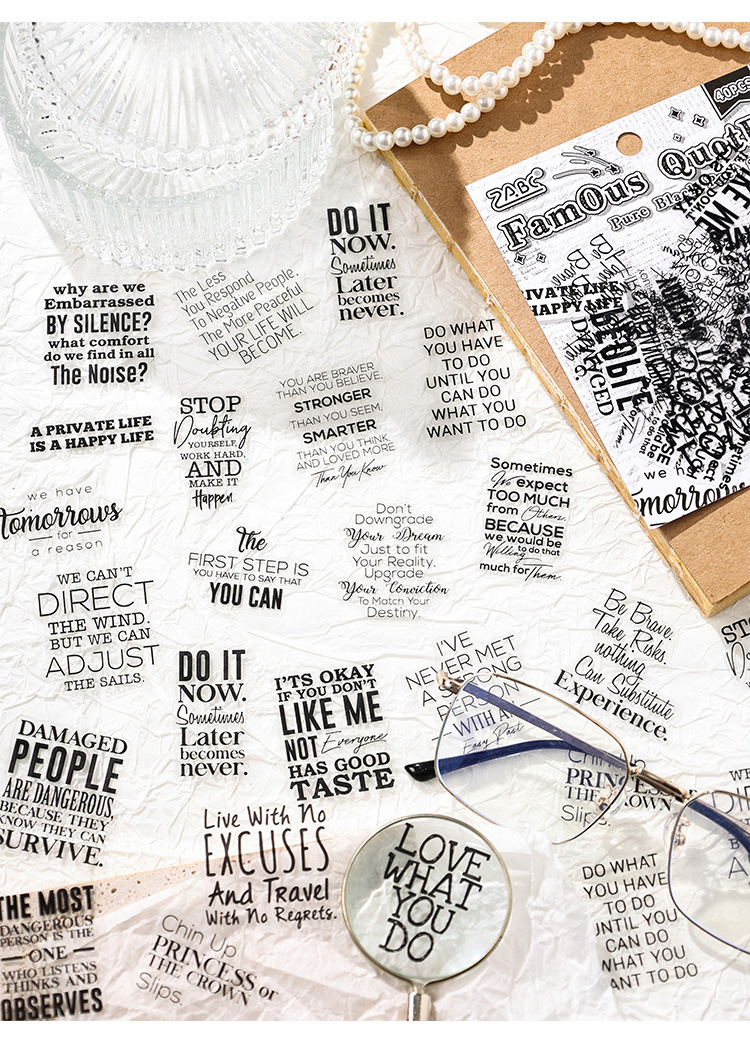 40PCS
ZABC
FamOus Quot
Pure Bla
DO IT
NOW.
Sometimes
Later
becomes
never.
why are we
Embarrassed
BY SILENCE?
what comfort
do we find in all
The Noise?
The Less
You Respond
To Negative People,
The More Peaceful
YOUR LIFE WILL
BECOME.
DO WHAT
YOU HAVE
TO DO
UNTIL YOU
CAN DO
WHAT YOU
WANT TO DO
A PRIVATE LIFE
IS A HAPPY LIFE
STOP
Doubting
YOURSELF,
WORK HARD,
AND
MAKE IT
Happen.
YOU ARE BRAVER
THAN YOU BELIEVE,
STRONGER
THAN YOU SEEM,
SMARTER
THAN YOU THINK
AND LOVED MORE
Than You Know
IVATE LIFE
HAPPY LIFE
we have
Tomorrows
for
a reason
The
FIRST STEP IS
YOU HAVE TO SAY THAT
YOU CAN
Don't
Downgrade
Your Dream
Just to fit
Your Reality.
Upgrade
Your Conviction
To Match Your
Destiny.
Sometimes
We expect
TOO MUCH
from Others.
BECAUSE
we would be
Willing to do that
much for Them.
morrows
WE CAN'T
DIRECT
THE WIND.
BUT WE CAN
ADJUST
THE SAILS.
DO IT
NOW.
Sometimes
Later
becomes
never.
I'TS OKAY
IF YOU DON'T
LIKE ME
NOT Everyone
HAS GOOD
TASTE
I'VE
NEVER MET
A STRONG
PERSON
WITH AN
Easy Past
Be Brave.
Take Risks.
nothing
Can Substitute
Experience.
DAMAGED
PEOPLE
ARE DANGEROUS,
BECAUSE THEY
KNOW THEY CAN
SURVIVE.
Live With No
EXCUSES
And Travel
With No Regrets.
Chin Up
PRINCESS
THE CROWN
Slips.
THE MOST
DANGEROUS
PERSON IS THE
ONE
WHO LISTENS
THINKS AND
OBSERVES
Chin Up
PRINCESS or
THE CROWN
Slips.
LOVE
WHAT
YOU
DO
DO WHAT
YOU HAVE
TO DO
UNTIL YOU
CAN DO
WHAT YOU
ANT TO DO